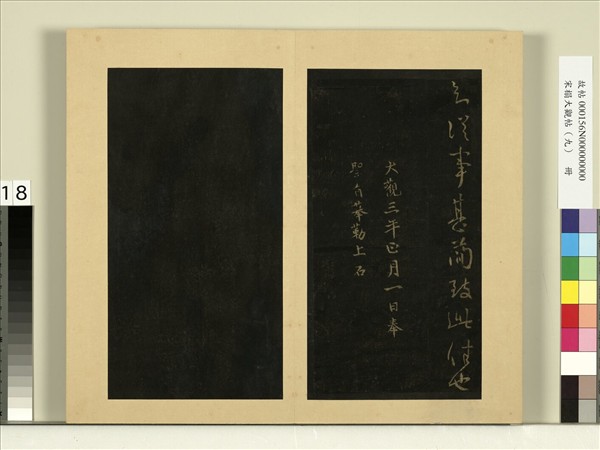 云從事甚簡致此佳也
大觀三年正月一日奉
聖旨摹勒上石
故帖 000156N000000000
宋搨大觀帖（九） 冊
18